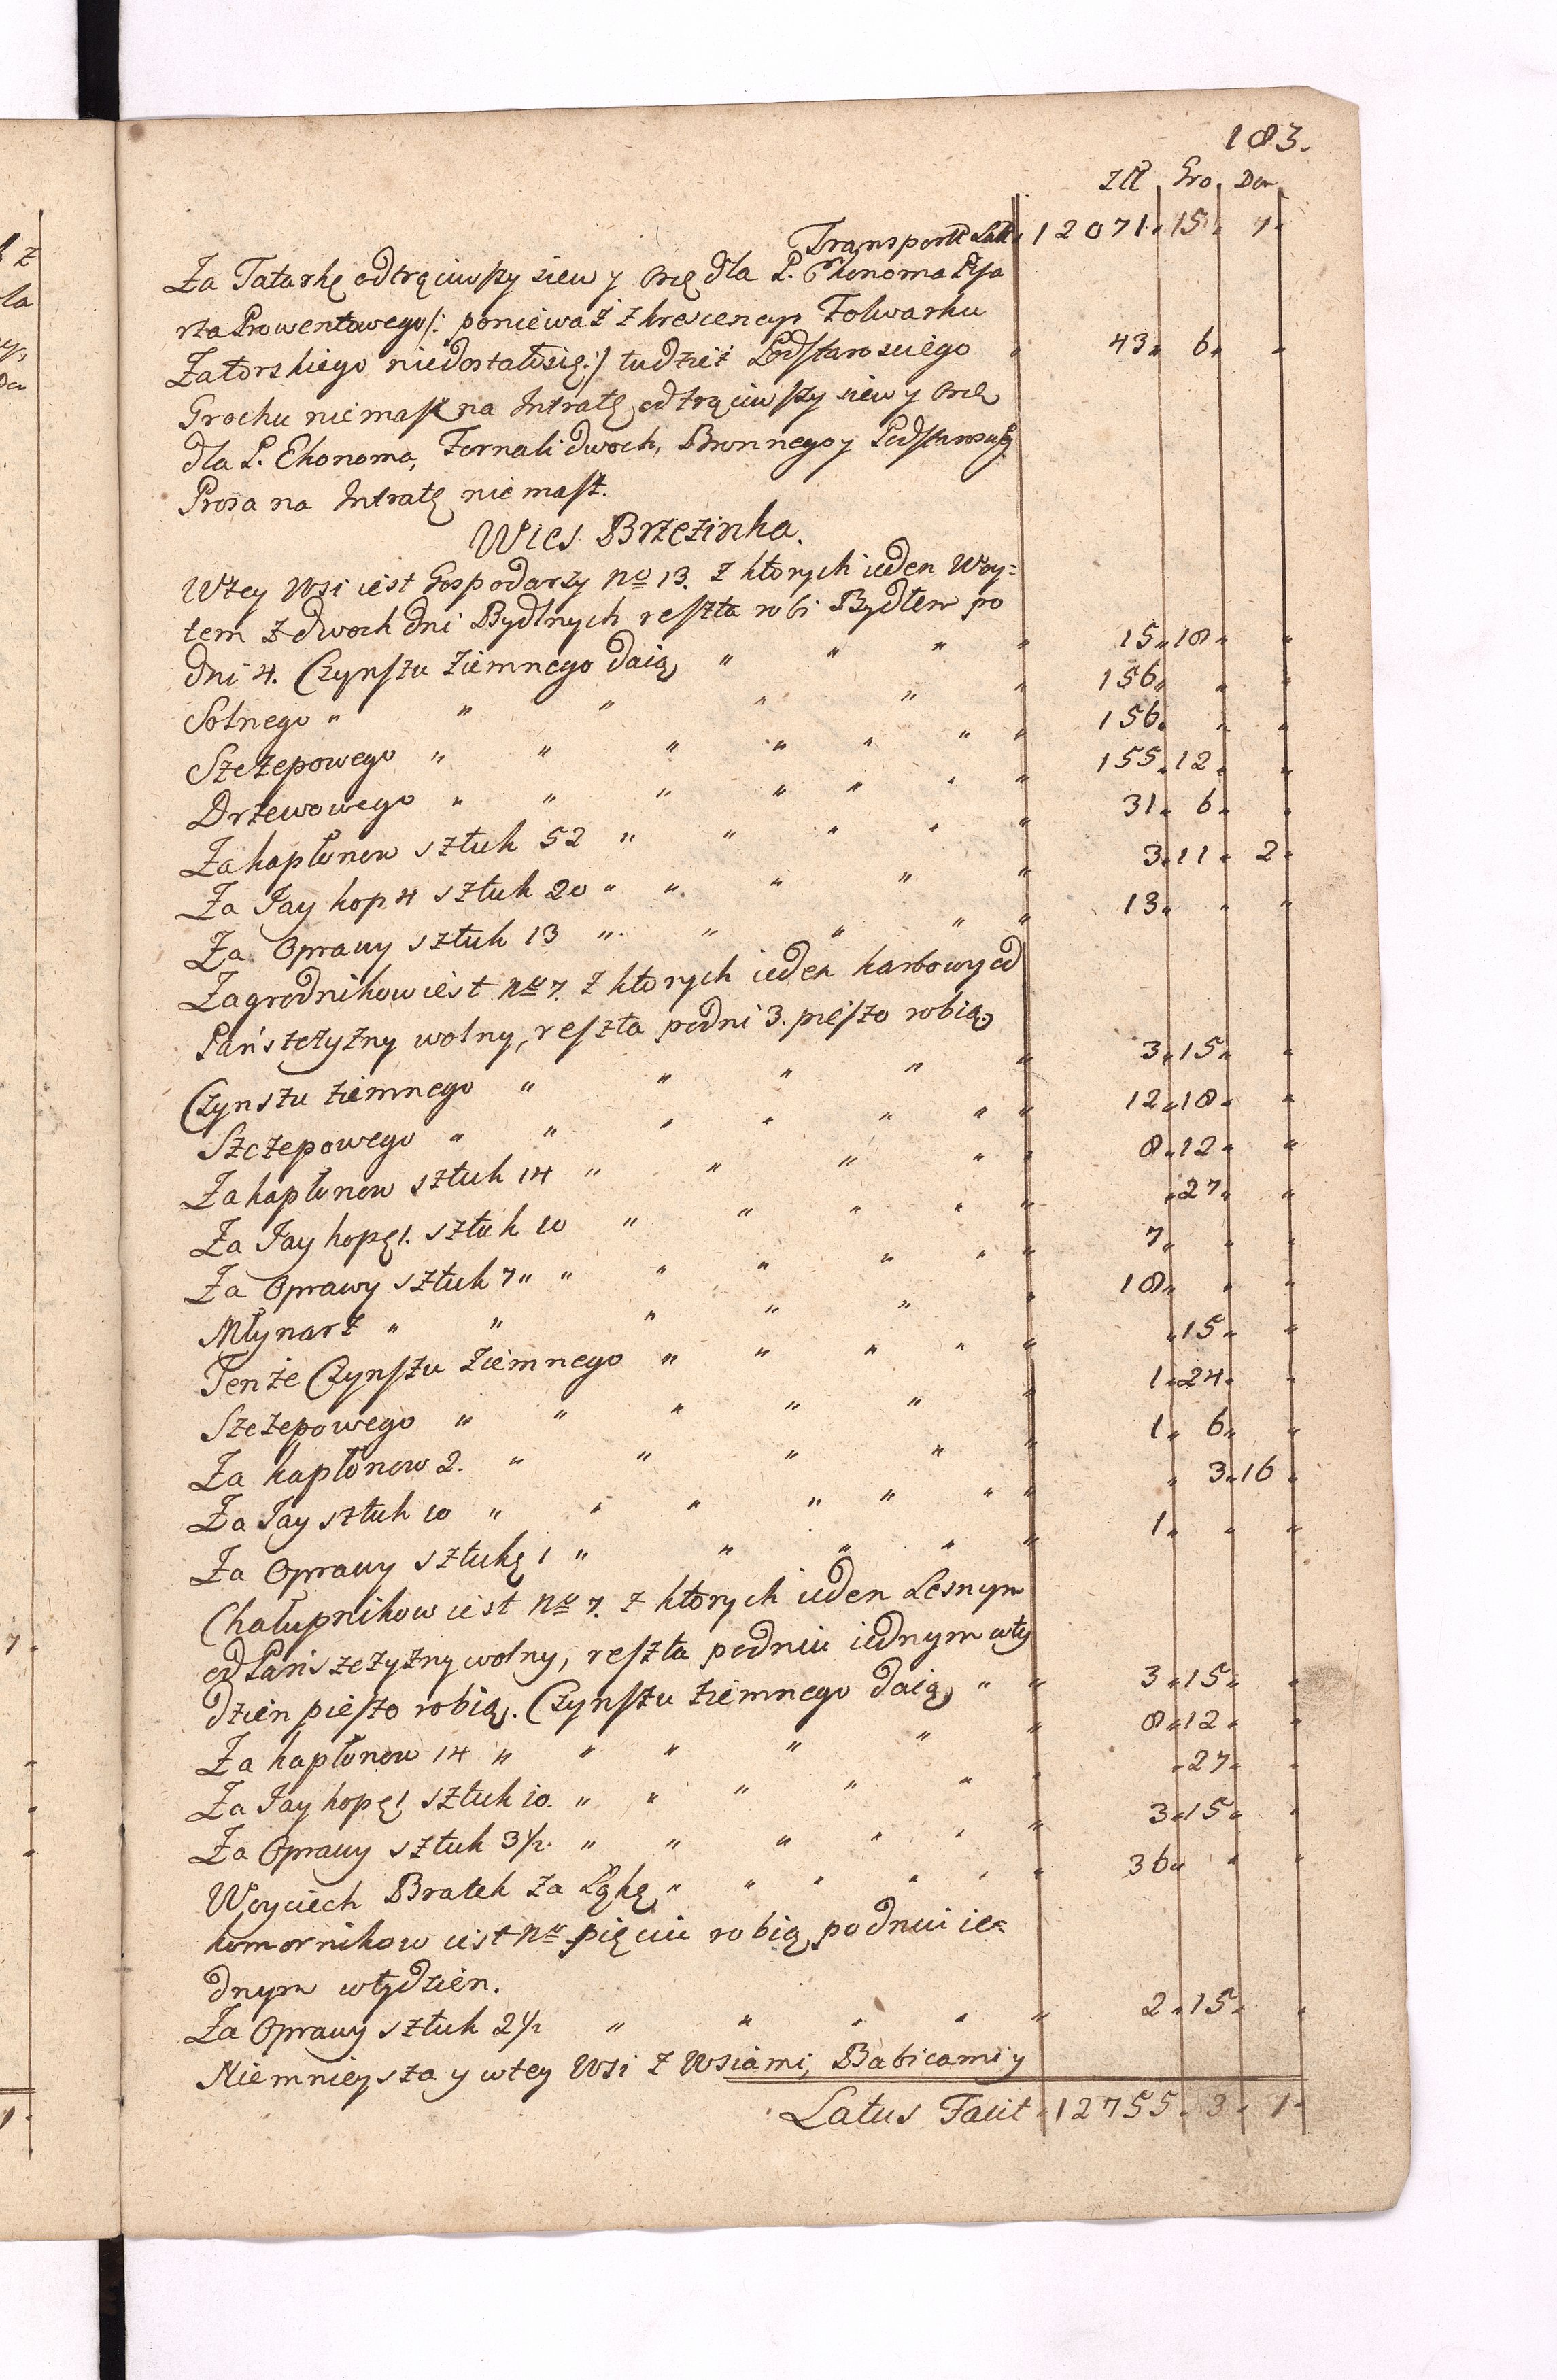 183.
Złł Gro Den
Transport Lat. 12071. 15. 7.
Za Tatarkę odtrąciwszy siew y Ord: dla P. Ekonoma Pisa
rza Prowentowego /: ponieważ z krescencyi Folwarku
Zatorskiego niedostało się :/ tudzież Podstarosciego " 43. 6. "
Grochu niemasz na Intratę odtrąciwszy siew y Ord:
dla P. Ekonoma, Fornali dwoch, Bronnego y Podstarosciego
Prosa na Intratę nie masz.
Wies Brzezinka.
Wtey Wsi iest Gospodarzy No 13. z ktorych ieden Woy=
tem z dwoch dni Bydlnych reszta robi Bydłem po
dni 4. Czynszu ziemnego daią " " " " 15. 18. "
Solnego " " " " " " 156. " "
Szczepowego " " " " " " " 156. " "
Drzewowego " " " " " " " 155. 12. "
Za kapłonow sztuk 52 " " " " " 31. 6. "
Za Jay kop 4 sztuk 20 " " " " " 3. 11. 2.
Za Oprawy sztuk 13 " " " " " 13. " "
Zagrodnikow iest No 7. z ktorych ieden karbowy od
Pańszczyzny wolny, reszta po dni 3. pieszo robią.
Czynszu ziemnego " " " " " 3. 15. "
Szczepowego " " " " " " " 12. 18. "
Za kapłonow sztuk 14 " " " " " 8. 12. "
Za Jay kopę 1. sztuk 10 " " " " " " 27. "
Za Oprawy sztuk 7 " " " " " " " 7. " "
Młynarz " " " " " " 18. " "
Tenże Czynszu Ziemnego " " " " " " 15. "
Szczepowego " " " " " " 1. 24. "
Za kapłonow 2. " " " " " 1. 6. "
Za Jay sztuk 10 " " " " " " " " 3. 16.
Za Oprawy sztukę 1 " " " " " 1. " "
Chałupnikow iest No 7. z ktorych ieden Lesnym
od Pańszczyzny wolny, reszta po dniu iednym wty
dzien pieszo robią. Czynszu ziemnego daią " " 3. 15. "
Za kapłonow 14 " " " " " " 8. 12. "
Za Jay kopę 1 sztuk 10. " " " " " " " 27. "
Za Oprawy sztuk 3 1/2. " " " " " " 3. 15. "
Woyciech Bratek za Łąkę " " " " " " 36. " "
komornikow iest No pięciu robią po dniu ie=
dnym wtydzien.
Za Oprawy sztuk 2 1/2 " " " " " 2. 15. "
Niemnieysza y wtey Wsi z Wsiami, Babicami y
Latus Facit " 12755. 3. 1.